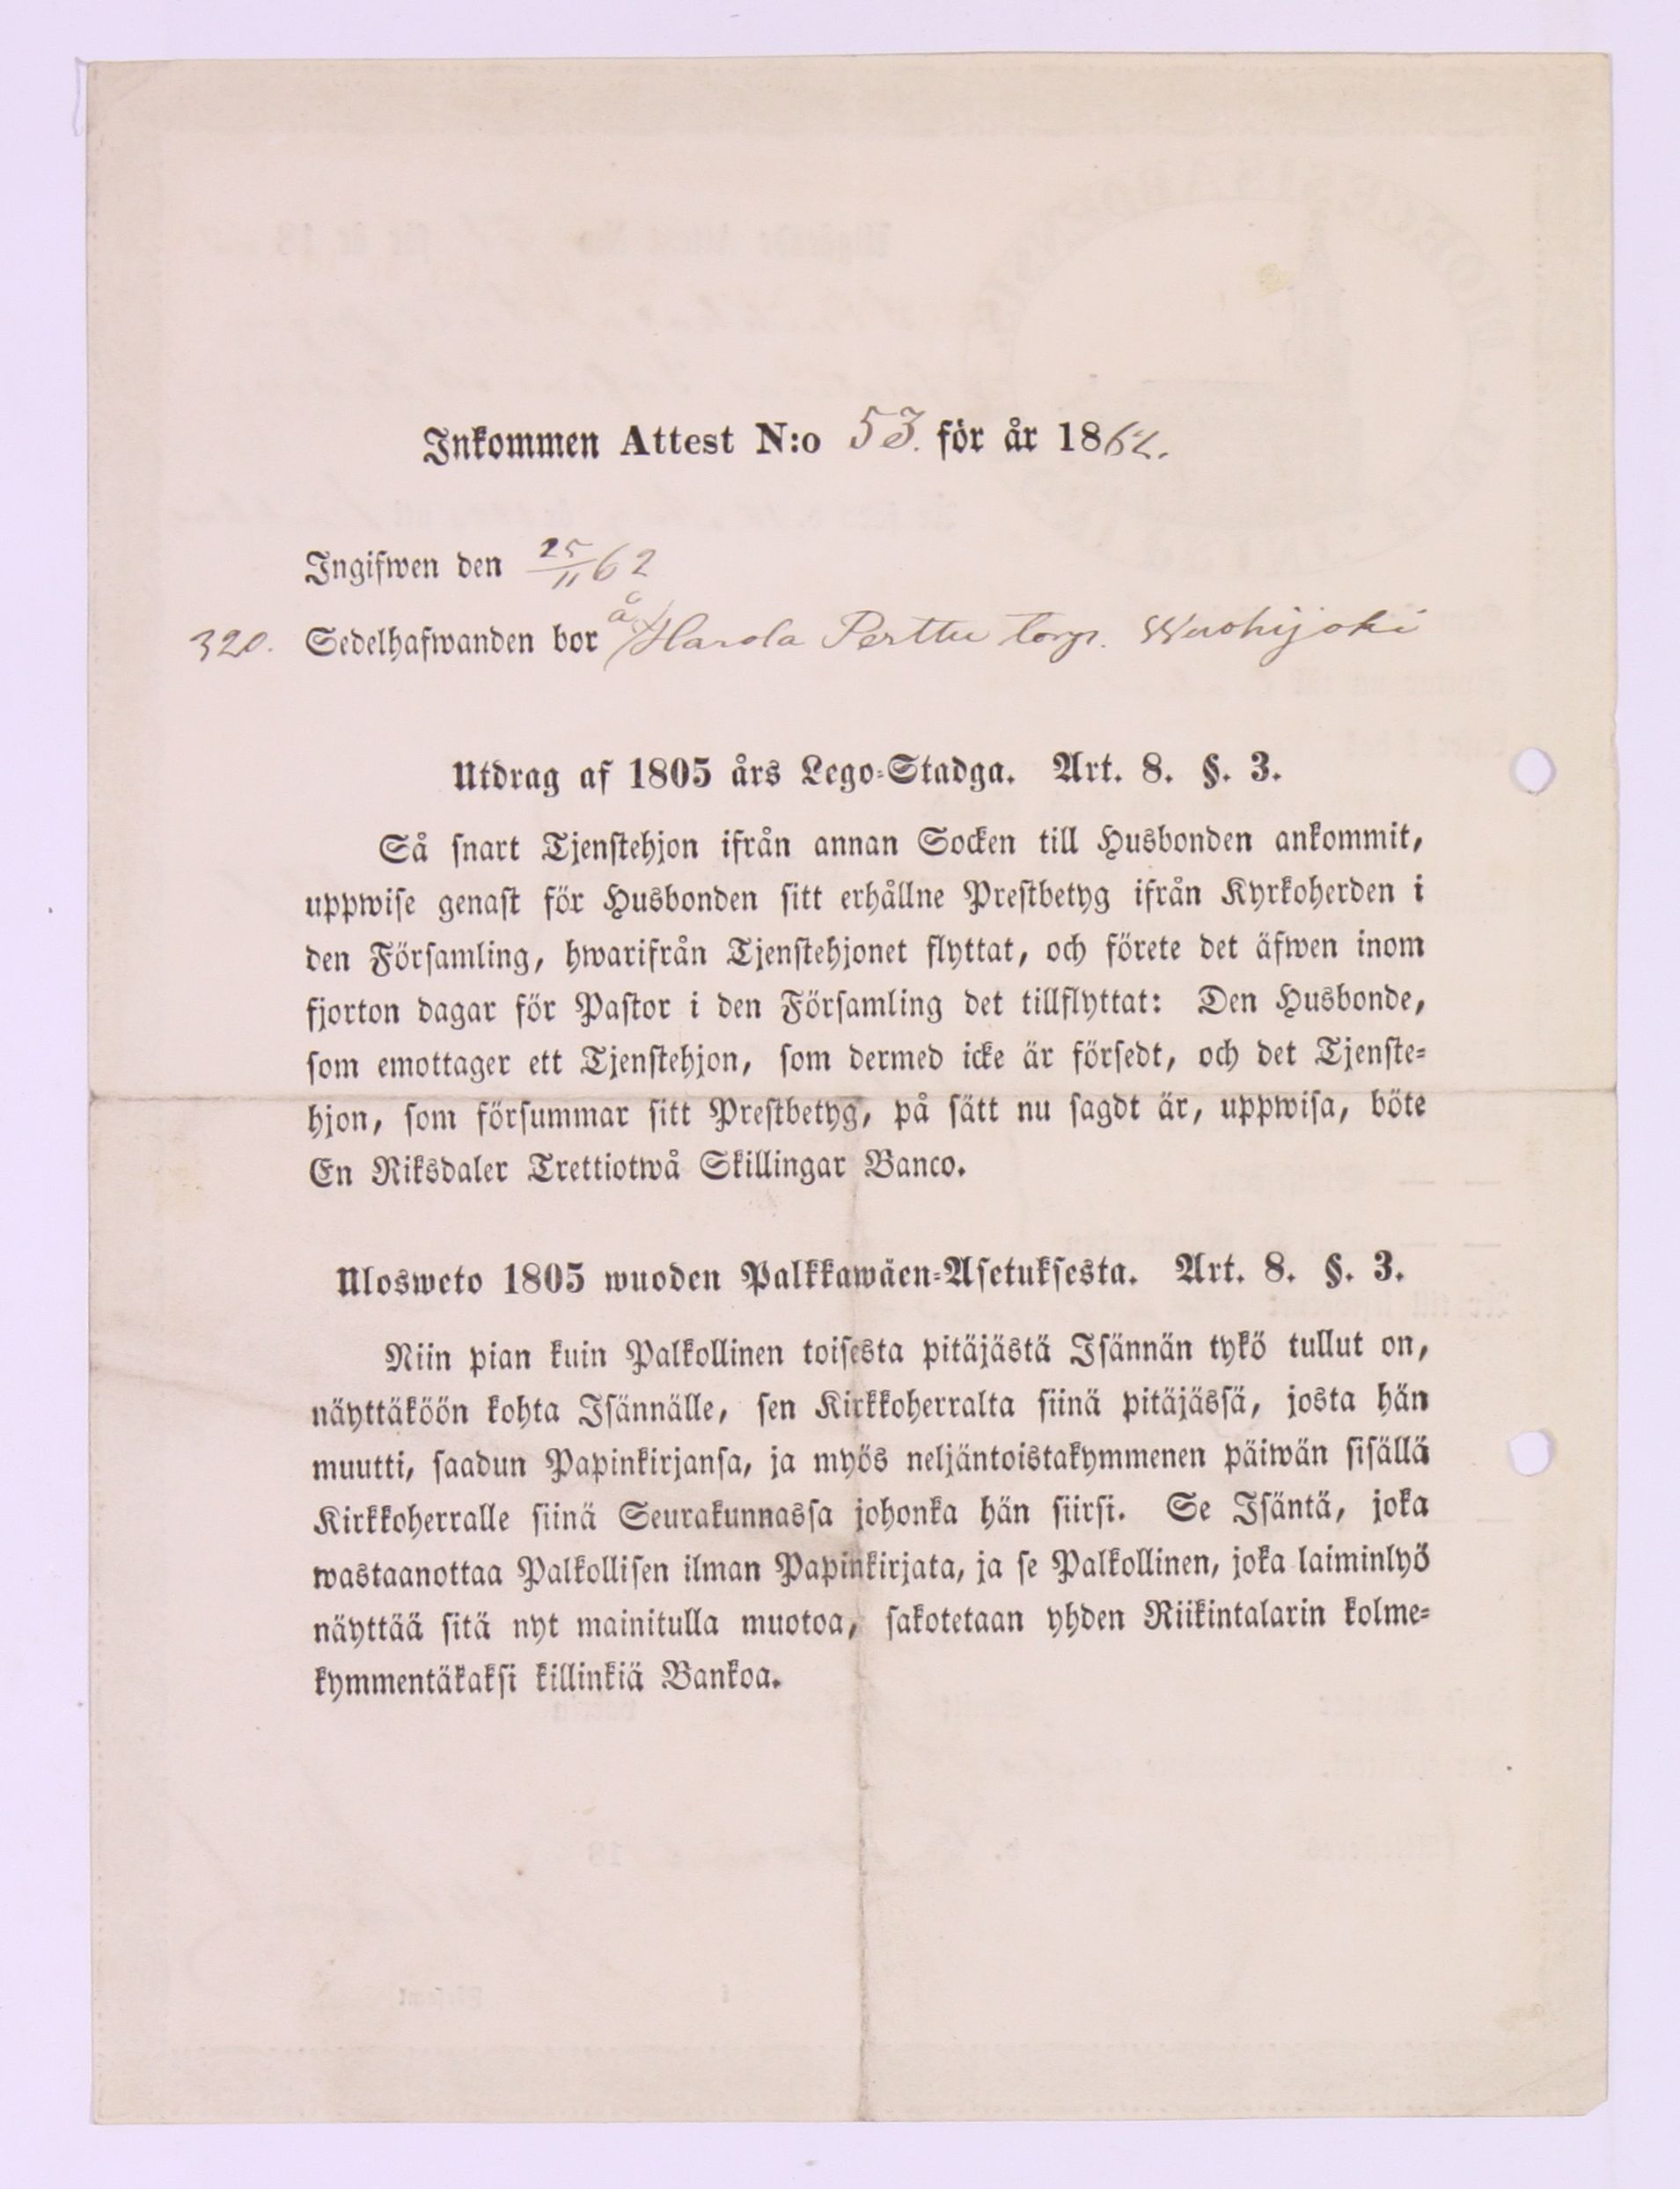 Inkommen Attest N:o 53. för år 1862.
Ingifwen den 25/11 62
320. Sedelhafwanden bor å Harola Perttu torp. Wuohijoki
Utdrag af 1805 års Lego-Stadga. Art. 8. §. 3.
Så snart Tjenstehjon ifrån annan Socken till Husbonden ankommit,
uppwise genast för Husbonden sitt erhållne Prestbetyg ifrån Kyrkoherden i
den Församling, hwarifrån Tjenstehjonet flyttat, och förete det äfwen inom
fjorton dagar för Pastor i den Församling det tillflyttat: Den Husbonde,
som emottager ett Tjenstehjon, som dermed icke är försedt, och det Tjenste-
hjon, som försummar sitt Prestbetyg, på sätt nu sagdt är, uppwisa, böte
En Riksdaler Trettiotwå Skillingar Banco.
Ulosweto 1805 wuoden Palkkawäen-Asetuksesta. Art. 8. §. 3.
Niin pian kuin Palkollinen toisesta pitäjästä Isännän tykö tullut on,
näyttäköön kohta Isännälle, sen Kirkkoherralta siinä pitäjässä, josta hän
muutti, saadun Papinkirjansa, ja myös neljäntoistakymmenen päiwän sisällä
Kirkkoherralle siinä Seurakunnassa johonka hän siirsi. Se Isäntä, joka
wastaanottaa Palkollisen ilman Papinkirjata, ja se Palkollinen, joka laiminlyö
näyttää sitä nyt mainitulla muotoa, sakotetaan yhden Riikintalarin kolme-
kymmentäkaksi killinkiä Bankoa.